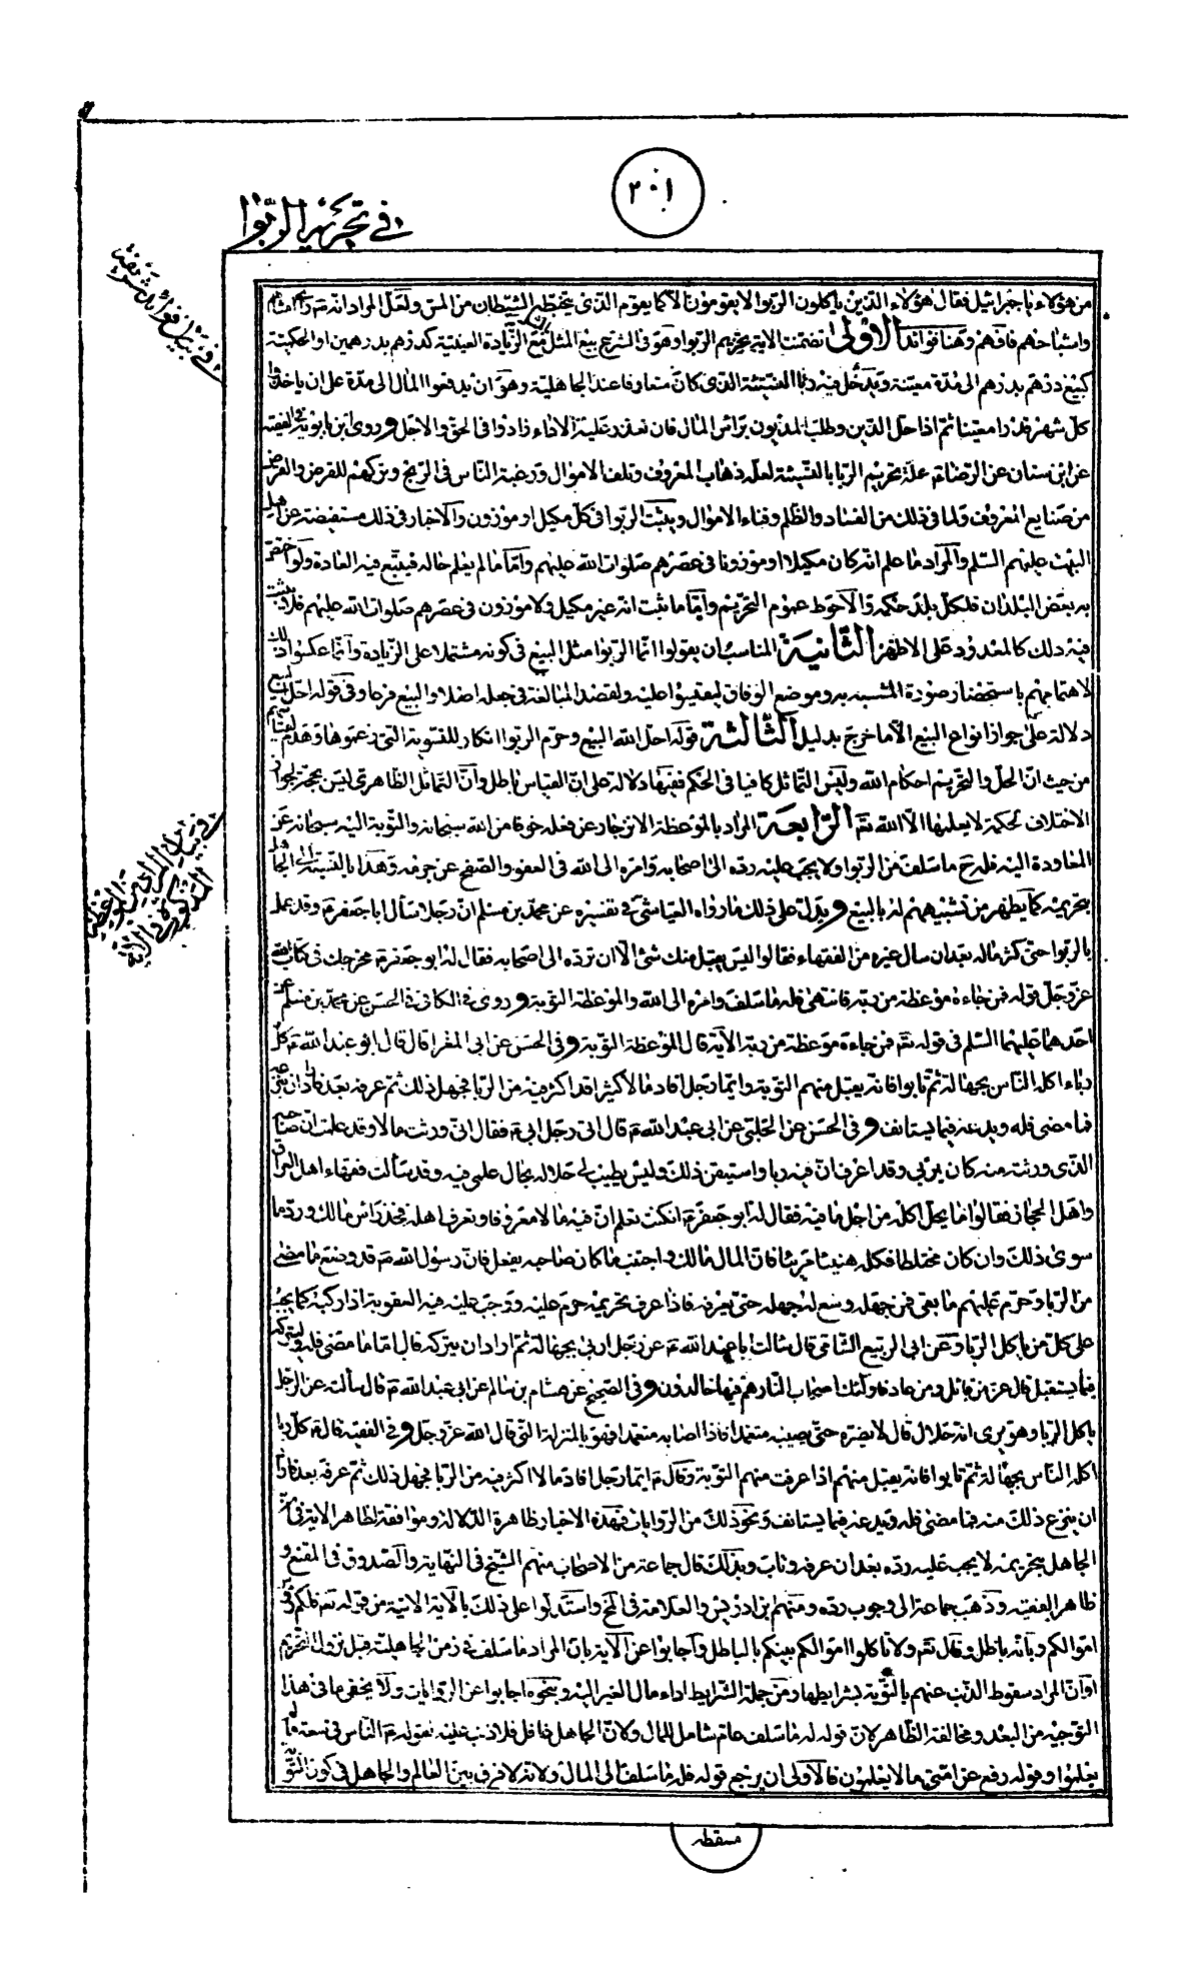 ٢٠١
في تحريم الربوا
في بيان فوائد شريفة
من هؤلاء يا جبرائيل فقال هؤلاء الذين ياكلون الربوا لا يقومون الا كما يقوم الذي يتخبطه الشيطان من المس ولعل المراد انه
واشباحهم فافهم وهنا فوائد الاولى تضمنت الاية تحريم الربوا وهو في الشرع بيع المثل مع الزيادة العينية كدرهم بدرهمين او الحكمية
كبيع درهم بدرهم الى مدة معينة ويدخل فيه ربا النسيئة الذي كان متعارفا عند الجاهلية وهو ان يدفعوا المال الى مدة على ان ياخذوا
كل شهر قدرا معينا ثم اذا حل الدين وطلب المديون براس المال فان تعذر عليه الاداء زادوا في الحق والاجل وروى ابن بابويه في الفقيه
عن ابن سنان عن الرضا ع علة تحريم الربا بالنسيئة لعلة ذهاب المعروف وتلف الاموال ورغبة الناس في الربح وتركهم للقرض والقرض
من صنايع المعروف ولما في ذلك من الفساد والظلم وفناء الاموال ويثبت الربوا في كل مكيل او موزون والاخبار في ذلك مستفيضة عن اهل
البيت عليهم السلم والمراد ما علم انه كان مكيلا او موزونا في عصرهم صلوات الله عليهم واما ما لم يعلم حاله فيتبع فيه العادة ولو اختص
به بعض البلدان فلكل بلد حكمه والاحوط عموم التحريم واما ما ثبت انه غير مكيل ولا موزون في عصرهم صلوات الله عليهم فلا يثبت
فيه ذلك كالمعدود على الاظهر الثانية المناسب ان يقولوا انما الربوا مثل البيع في كونه مشتملا على الزيادة وانما عكسوا ذلك
لاهتمامهم باستحضار صورة المشبه به وموضع الوفاق ليقيسوا عليه ولقصد المبالغة في جعله اصلا والبيع فرعا وفي قوله احل البيع
دلالة على جواز انواع البيع الا ما خرج بدليل الثالثة قوله احل الله البيع وحرم الربوا انكار للتسوية التي زعموها وهدم لقياسهم
من حيث ان الحل والتحريم احكام الله وليس التماثل كافيا في الحكم ففيها دلالة على ان القياس باطل وان التماثل الظاهري ليس بحجة لجواز
الاختلاف لحكمة لا يعلمها الا الله تعالى الرابعة المراد بالموعظة الانزجار عن فعله خوفا من الله سبحانه والتوبة اليه سبحانه عن
في بيان المراد من الموعظة
المذكورة في الاية
المعاودة اليه فله ح ما سلف من الربوا ولا يجب عليه رده الى اصحابه وامره الى الله في العفو والصفح عن جرمه وهذا بالنسبة الى الجاهل
بتحريمه كما يظهر من تشبيههم له بالبيع ويدل على ذلك ما رواه العياشي في تفسيره عن محمد بن مسلم ان رجلا سال ابا جعفر ع وقد عمل
بالربوا حتى كثر ماله بعد ان سال غيره من الفقهاء فقالوا ليس يقبل منك شئ الا ان ترده الى اصحابه فقال له ابو جعفر ع مخرجك في كتاب الله
عز وجل قوله فمن جاءه موعظة من ربه فانتهى فله ما سلف وامره الى الله والموعظة التوبة وروى في الكافي في الحسن عن محمد بن مسلم عن
احدهما عليهما السلم في قوله تع فمن جاءه موعظة من ربه الاية قال الموعظة التوبة وفي الحسن عن ابي المغرا قال قال ابو عبد الله ع كل
رباء اكله الناس بجهالة ثم تابوا فانه يقبل منهم التوبة وايما رجل افاد مالا كثيرا قد اكثر فيه من الربا فجهل ذلك ثم عرفه بعد فاراد ان ينزعه
فما مضى فله ويدعه فيما يستانف وفي الحسن عن الحلبي عن ابي عبد الله ع قال اتى رجل ابي ع فقال اني ورثت مالا وقد علمت ان صاحبه
الذي ورثته منه كان يربي وقد اعرف ان فيه ربا واستيقن ذلك وليس يطيب لي حلاله بحال علمي فيه وقد سالت فقهاء اهل العراق
واهل الحجاز فقالوا ما يحل اكله من اجل ما فيه فقال له ابو جعفر ع ان كنت تعلم ان فيه مالا معروفا وتعرف اهله فخذ راس مالك ورد ما
سوى ذلك وان كان مختلطا فكله هنيئا مريئا فان المال مالك واجتنب ما كان صاحبه يفعل فان رسول الله ص قد وضع ما مضى
من الربا وحرم عليهم ما بقي فمن جهله وسع له جهله حتى يعرفه فاذا عرف تحريمه حرم عليه ووجب عليه فيه العقوبة اذا ركبه كما يجب
على كل من ياكل الربا وعن ابي الربيع الشامي قال سالت ابا عبد الله ع عن رجل اربى بجهالة ثم اراد ان يتركه قال اما ما مضى فله وليتركه
فيما يستقبل قال عز من قائل ومن عاد فاولئك اصحاب النار هم فيها خالدون وفي الصحيح عن هشام بن سالم عن ابي عبد الله ع قال سالته عن الرجل
ياكل الربا وهو يرى انه حلال قال لا يضره حتى يصيبه متعمدا فاذا اصابه متعمدا فهو بالمنزلة التي قال الله عز وجل وفي الفقيه قال ع كل ربا
اكله الناس بجهالة ثم تابوا فانه يقبل منهم اذا عرفت منهم التوبة وقال ع ايما رجل افاد مالا اكثر فيه من الربا فجهل ذلك ثم عرفه بعد فاراد
ان ينزع ذلك منه فما مضى فله ويدعه فيما يستانف ونحو ذلك من الروايات فهذه الاخبار ظاهرة الدلالة وموافقة لظاهر الاية في ان
الجاهل بتحريمه لا يجب عليه رده بعد ان عرفه وتاب وبذلك قال جماعة من الاصحاب منهم الشيخ في النهاية والصدوق في المقنع و
ظاهر الفقيه وذهب جماعة الى وجوب رده ومنهم بن ادريس والعلامة في لخ واستدلوا على ذلك بالاية الاتية من قوله تع فلكم رؤس
اموالكم وبانه باطل وقال تع ولا تاكلوا اموالكم بينكم بالباطل واجابوا عن الاية بان المراد ما سلف في زمن الجاهلية قبل نزول التحريم
او ان المراد سقوط الذنب عنهم بالتوبة بشرايطها ومن جملة الشرايط اداء مال الغير اليه وبنحوه اجابوا عن الروايات ولا يخفى ما في هذا
التوجيه من البعد ومخالفة الظاهر لان قوله له ما سلف عام شامل للمال ولان الجاهل غافل فلا ذنب عليه لقوله ع الناس في سعة ما لم
يعلموا وقوله رفع عن امتي ما لا يعلمون فالاولى ان يرجع قوله فله ما سلف الى المال ولانه لا فرق بين العالم والجاهل في كون التوبة
مسقطة